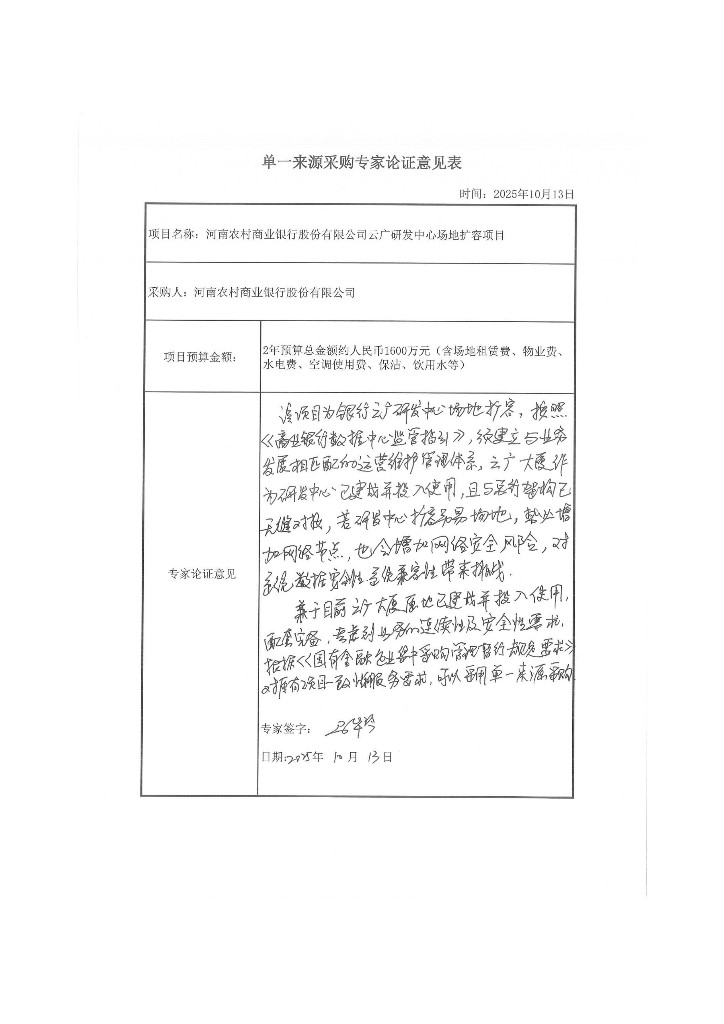 单一来源采购专家论证意见表
时间：2025年10月13日
项目名称：河南农村商业银行股份有限公司云广研发中心场地扩容项目
采购人：河南农村商业银行股份有限公司
项目预算金额：
2年预算总金额约人民币1600万元（含场地租赁费、物业费、
水电费、空调使用费、保洁、饮用水等）
专家论证意见
该项目为银行云广研发中心场地扩容，按照
《商业银行数据中心监管指引》，须建立与业务
发展相匹配的运营维护管理体系，云广大厦作
为研发中心已建成并投入使用，且与总行架构已
无缝对接，若研发中心扩容另易场地，势必增
加网络节点，也会增加网络安全风险，对
系统数据安全性 系统兼容性带来挑战.
基于目前云广大厦 地已建成并投入使用，
配套完备，考虑到业务的连续性及安全性要求，
根据《国有金融企业集中采购管理暂行规定 要求》
对原有项目一致性 服务要求，可以采用单一来源采购
专家签字：
日期：2025年 10 月 13 日